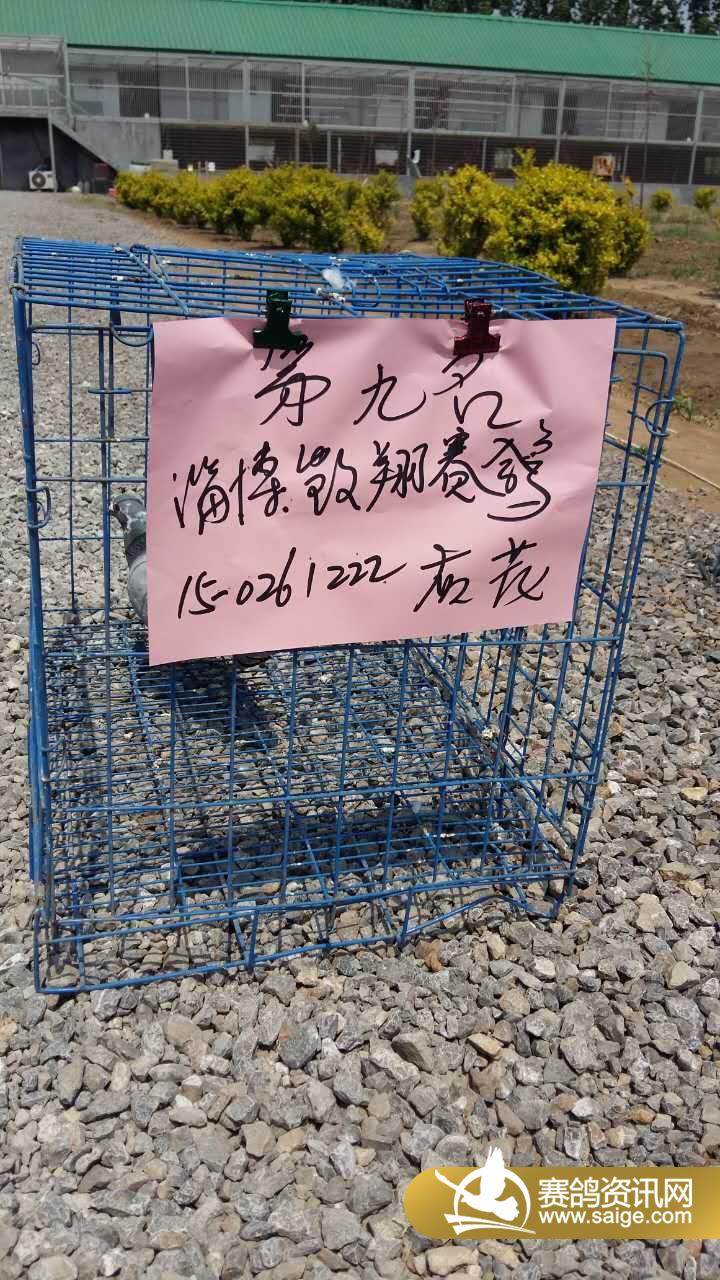 第九名
淄博毅翔赛鸽
15-0261222 花
赛鸽资讯网
www.saige.com